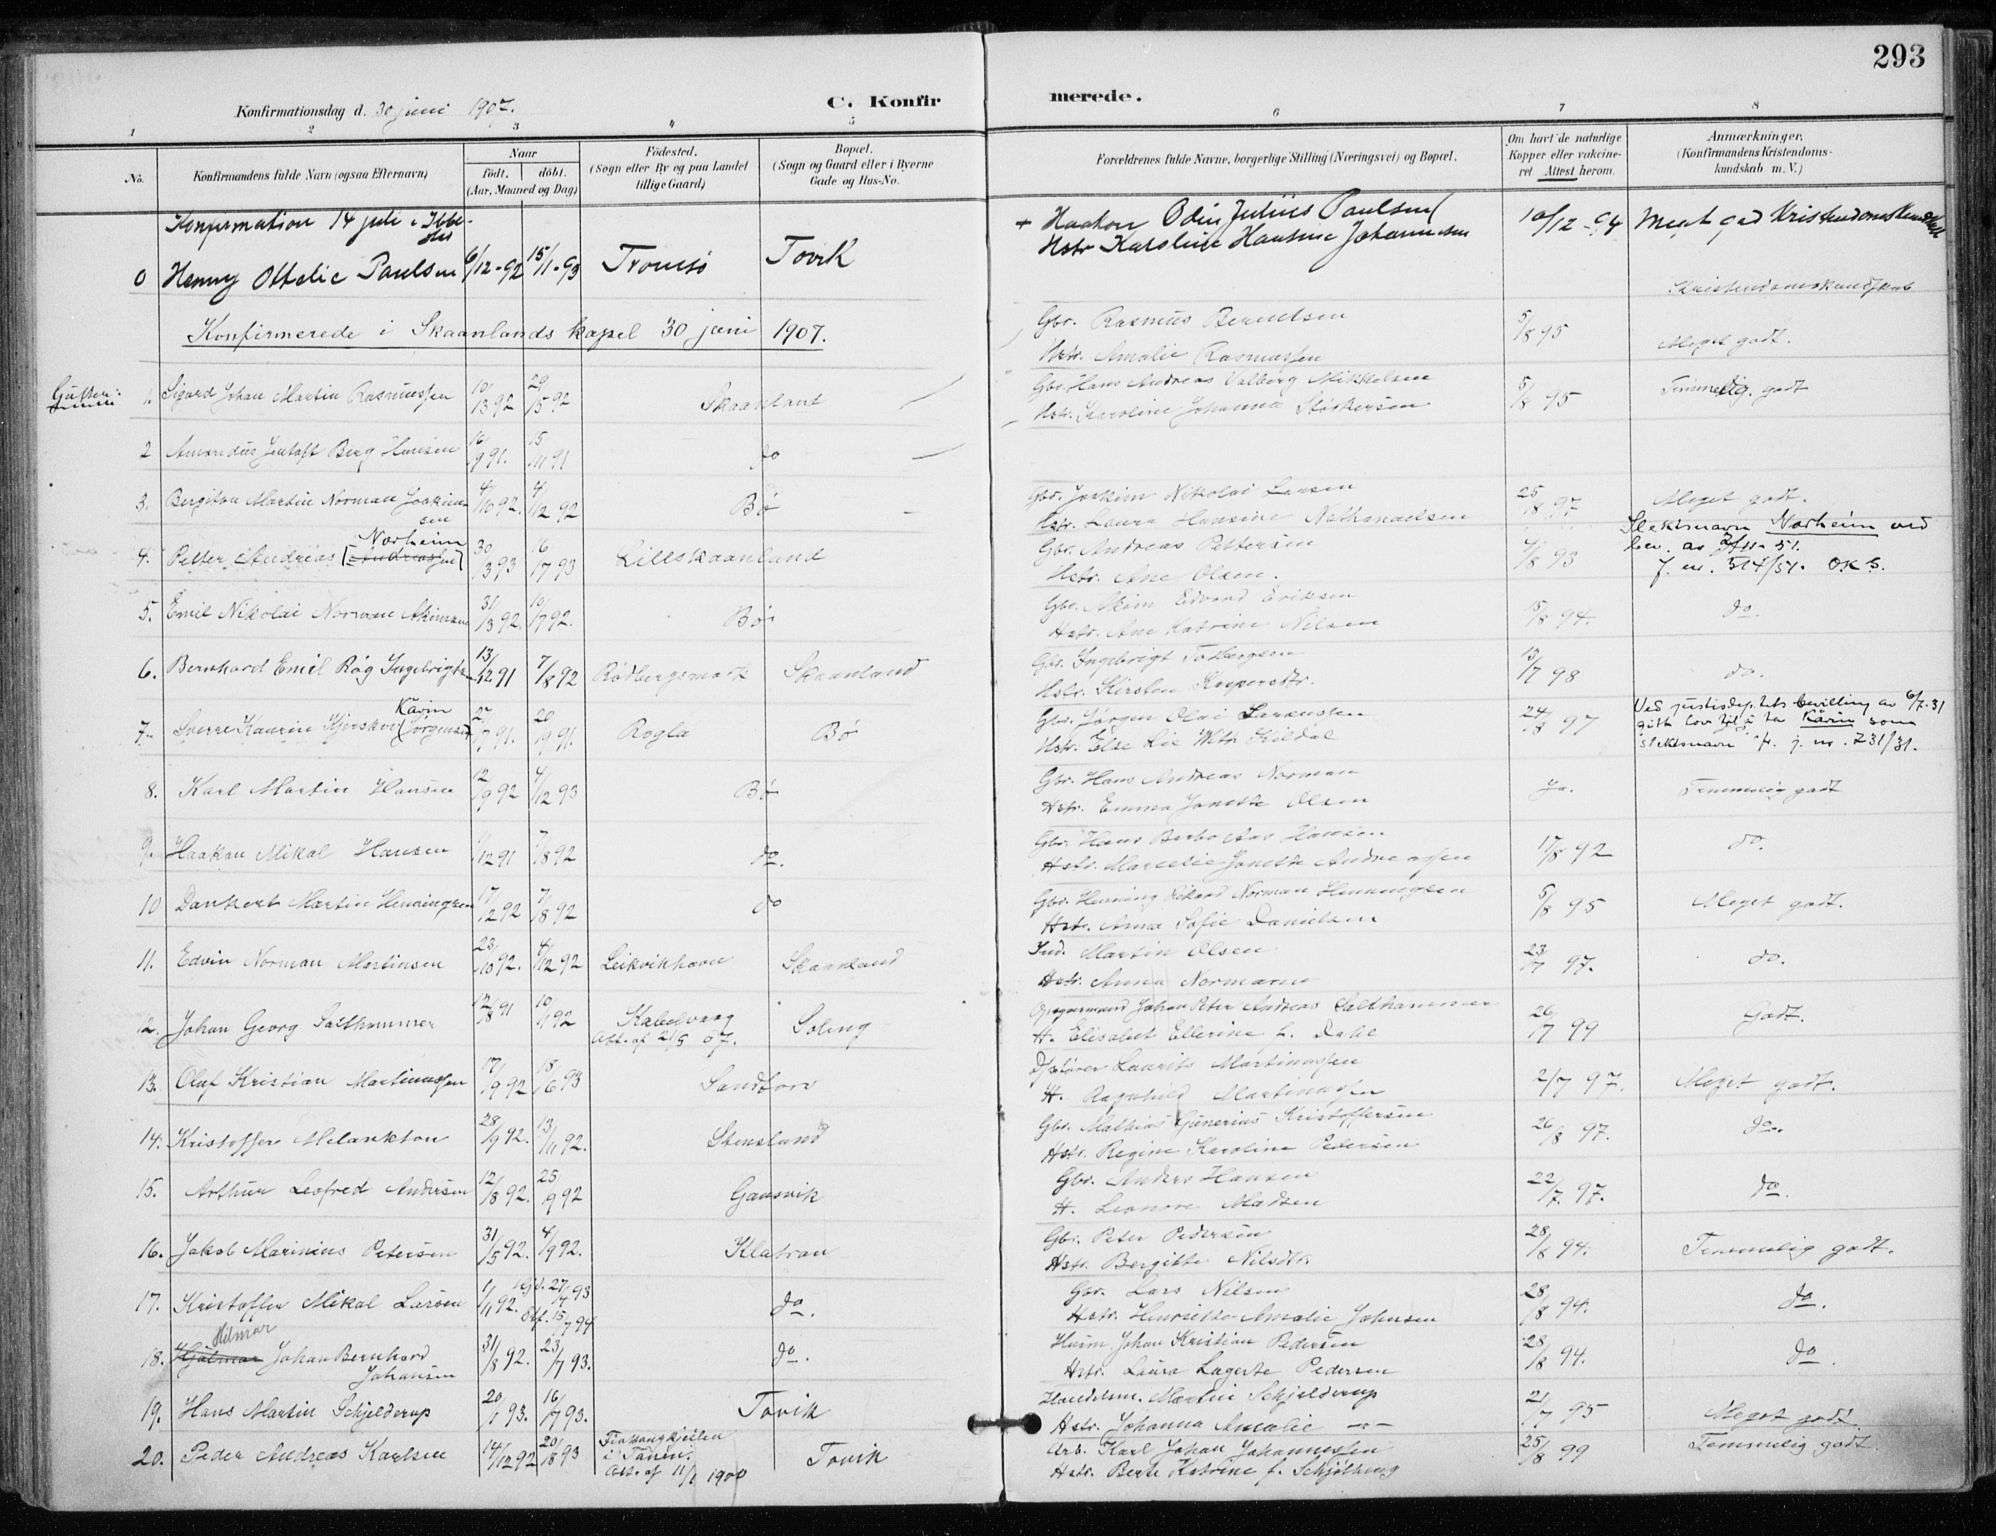 293
Konfirmationsdag d. 30 juni 1907.
C. Konfirmerede.
1 2 3 4 5 6 7 8
No.
Konfirmandens fulde Navn (ogsaa Efternavn)
Naar
født. døbt.
(Aar, Maaned og Dag)
Fødested.
(Sogn eller By og paa Landet
tillige Gaard)
Bopæl.
(Sogn og Gaard eller i Byerne
Gade og Hus-No.
Forældrenes fulde Navne, borgerlige Stilling (Næringsvei) og Bopæl.
Om havt de naturlige
Kopper eller vakcine-
ret. Attest herom.
Anmærkninger.
(Konfirmandens Kristendoms-
kundskab m. V.)
Konfirmation 14 juli i Ibbe-
0 Henny Ottelie Paulsen 6/12-92 15/1-93 Tromsø Tovik
+ Haakon Odin Julius Paulsen
Hstr Karoline Hansine Johannesen
10/12-94 Meget god Kristendomskundskab
Kristendomskundskab
Konfirmerede i Skaanlands kapel 30 juni 1907.
Gutter:
1. Sigurd Johan Martin Rasmussen 10/3 92 29/5 92 Skaanland
Gbr. Rasmus Berntsen
Hstr. Amalie Rasmussen
5/8 95 Meget godt.
2 Amandus Jentoft Berg Hansen 16/9 91. 15/11 91 do
Gbr. Hans Andreas Valberg Mikkelsen
Hstr. Karoline Johanna
5/8 95 Temmelig godt
3. Bergiton Martin Norman Joakim-
sen 4/10 92. 4/12 92 Bø
Gbr. Joakim Nikolai Larsen
Hstr. Laura Hansine Nathanaelsen
25/8 97 Meget godt.
4. Petter Andreas [Andreassen] Norheim 30/3 93 16/7 93 Lillskaanland
Gbr. Andreas Pettersen
Hstr. Ane Olsen.
4/8 93
Slektsnavn Norheim ved
bev. av 2/11-51.
j. nr. 514/51. OKS.
5. Emil Nikolai Norman Akimsen 31/3 92. 10/7 92. Bø
Gbr. Akim Edvard Eriksen
Hstr. Ane Katrine Nilsen
15/8 94. do.
6. Bernhard Emil Røg Ingebrigtsen 13/12 91 7/8 92 Rødbergsmark Skaanland
Gbr. Ingebrigt Torbergsen
Hstr. Kirsten Kaspersdtr.
13/7 98 do.
7. Sverre Kaurin (Jørgensen) Kavin 27/7 91. 20/9 91. Rogla Bø
Gbr. Jørgen Olai Lorentsen
Hstr. Else Lie With Kildal
24/8 97
Ved justisdep.tets bevilling av 6/7-31
gitt lov til å ta Kavin som
slektsnavn fr. j. nr. 731/31.
8. Karl Martin Hansen 12/9 92 4/12 93 Bø
Gbr. Hans Andreas Norman
Hstr. Emma Janette Olsen
Ja. Temmelig godt
9. Haakon Mikal Hansen 1/12 91 7/8 92 do.
Gbr. Hans Hansen
Hstr. Marcelie Janette Andreassen
17/8 92 do.
10 Dankert Martin Henningsen 17/2 92 7/8 92 do
Gbr. Henning Rikard Norman Henningsen
Hstr. Anna Sofie Danielsen
5/8 95 Meget godt.
11. Edvin Norman Martinsen 23/10 92. 4/12 92 Leikvikhavn Skaanland
Ind. Martin Olsen
Hstr. Anna Normann
23/7 97. do.
12. Johan Georg Salthammer 12/8 91 10/1 92 Kabelvaag
Att. af 21/5 07. Soling
Johan Peter Andreas Salthammer
H. Elisabet Ellerine L. Dahl
26/7 99 Godt.
13. Oluf Kristian Martinussen 17/9 92 18/6 93 Sandtorv
Laurits Martinussen
H. Ragnhild Martinussen
2/7 97. Meget godt.
14. Kristoffer Melankton 28/9 92. 13/11 92. Stensland
Gbr. Mathias Gunerius Kristoffersen
Hstr. Regine Karoline Pedersen
26/8 97. do.
15. Arthur Leofred Andersen 12/8 92. 25/9 92 Gausvik
Gbr. Anders Hansen
H. Leonore Madsen
22/7 97. do.
16. Jakob Marinius Petersen 31/5 92. 4/9 92. Klatran
Gbr. Peter Pedersen
Hstr. Bergitte Nilsdtr.
28/8 94. Temmelig godt.
17. Kristoffer Mikal Larsen 1/11 92. Hjd. 27/4 93
Stf. 15/7 94 do.
Gbr. Lars Nilsen
Hstr. Henriette Amalie Johnsen
28/8 94. do.
18. Hjalmar Hilmar Johan Bernhard
Johansen 31/8 92. 23/7 93. do.
Husm. Johan Kristian Pedersen
Hstr. Laura Lagerte Pedersen
28/8 94. do.
19. Hans Martin Schjelderup 20/1 93. 16/7 93. Tovik
Handelsm. Martin Schjelderup
Hstr. Johanna Amalie — " —
21/7 95 Meget godt
20. Peder Andreas Karlsen 14/12 92 20/8 93
i Tanen.
Att. af 11/ 1900 Tovik
Arb. Karl Johan Johannessen
Hstr. Berte Katrine f. Schjølberg
25/8 99 Temmelig godt.